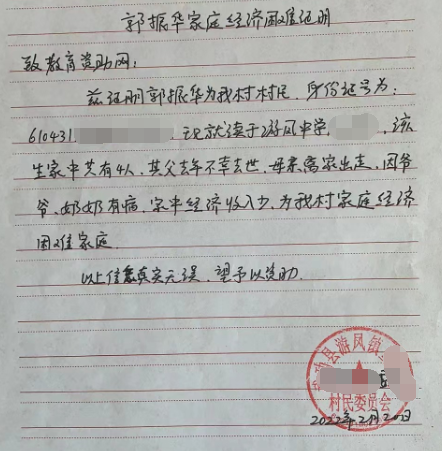 郭振华家庭经济困难证明
致教育资助网：
兹证明郭振华为我村村民，身份证号为：
610431，现就读于游凤中学，，该
生家中共有4人，其父去年不幸去世，母亲离家出走，因爷
爷、奶奶有病，家中经济收入少，为我村家庭经济
困难家庭
以上信息真实无误，望予以资助
县游凤镇
村民委员会
2022年2月20日